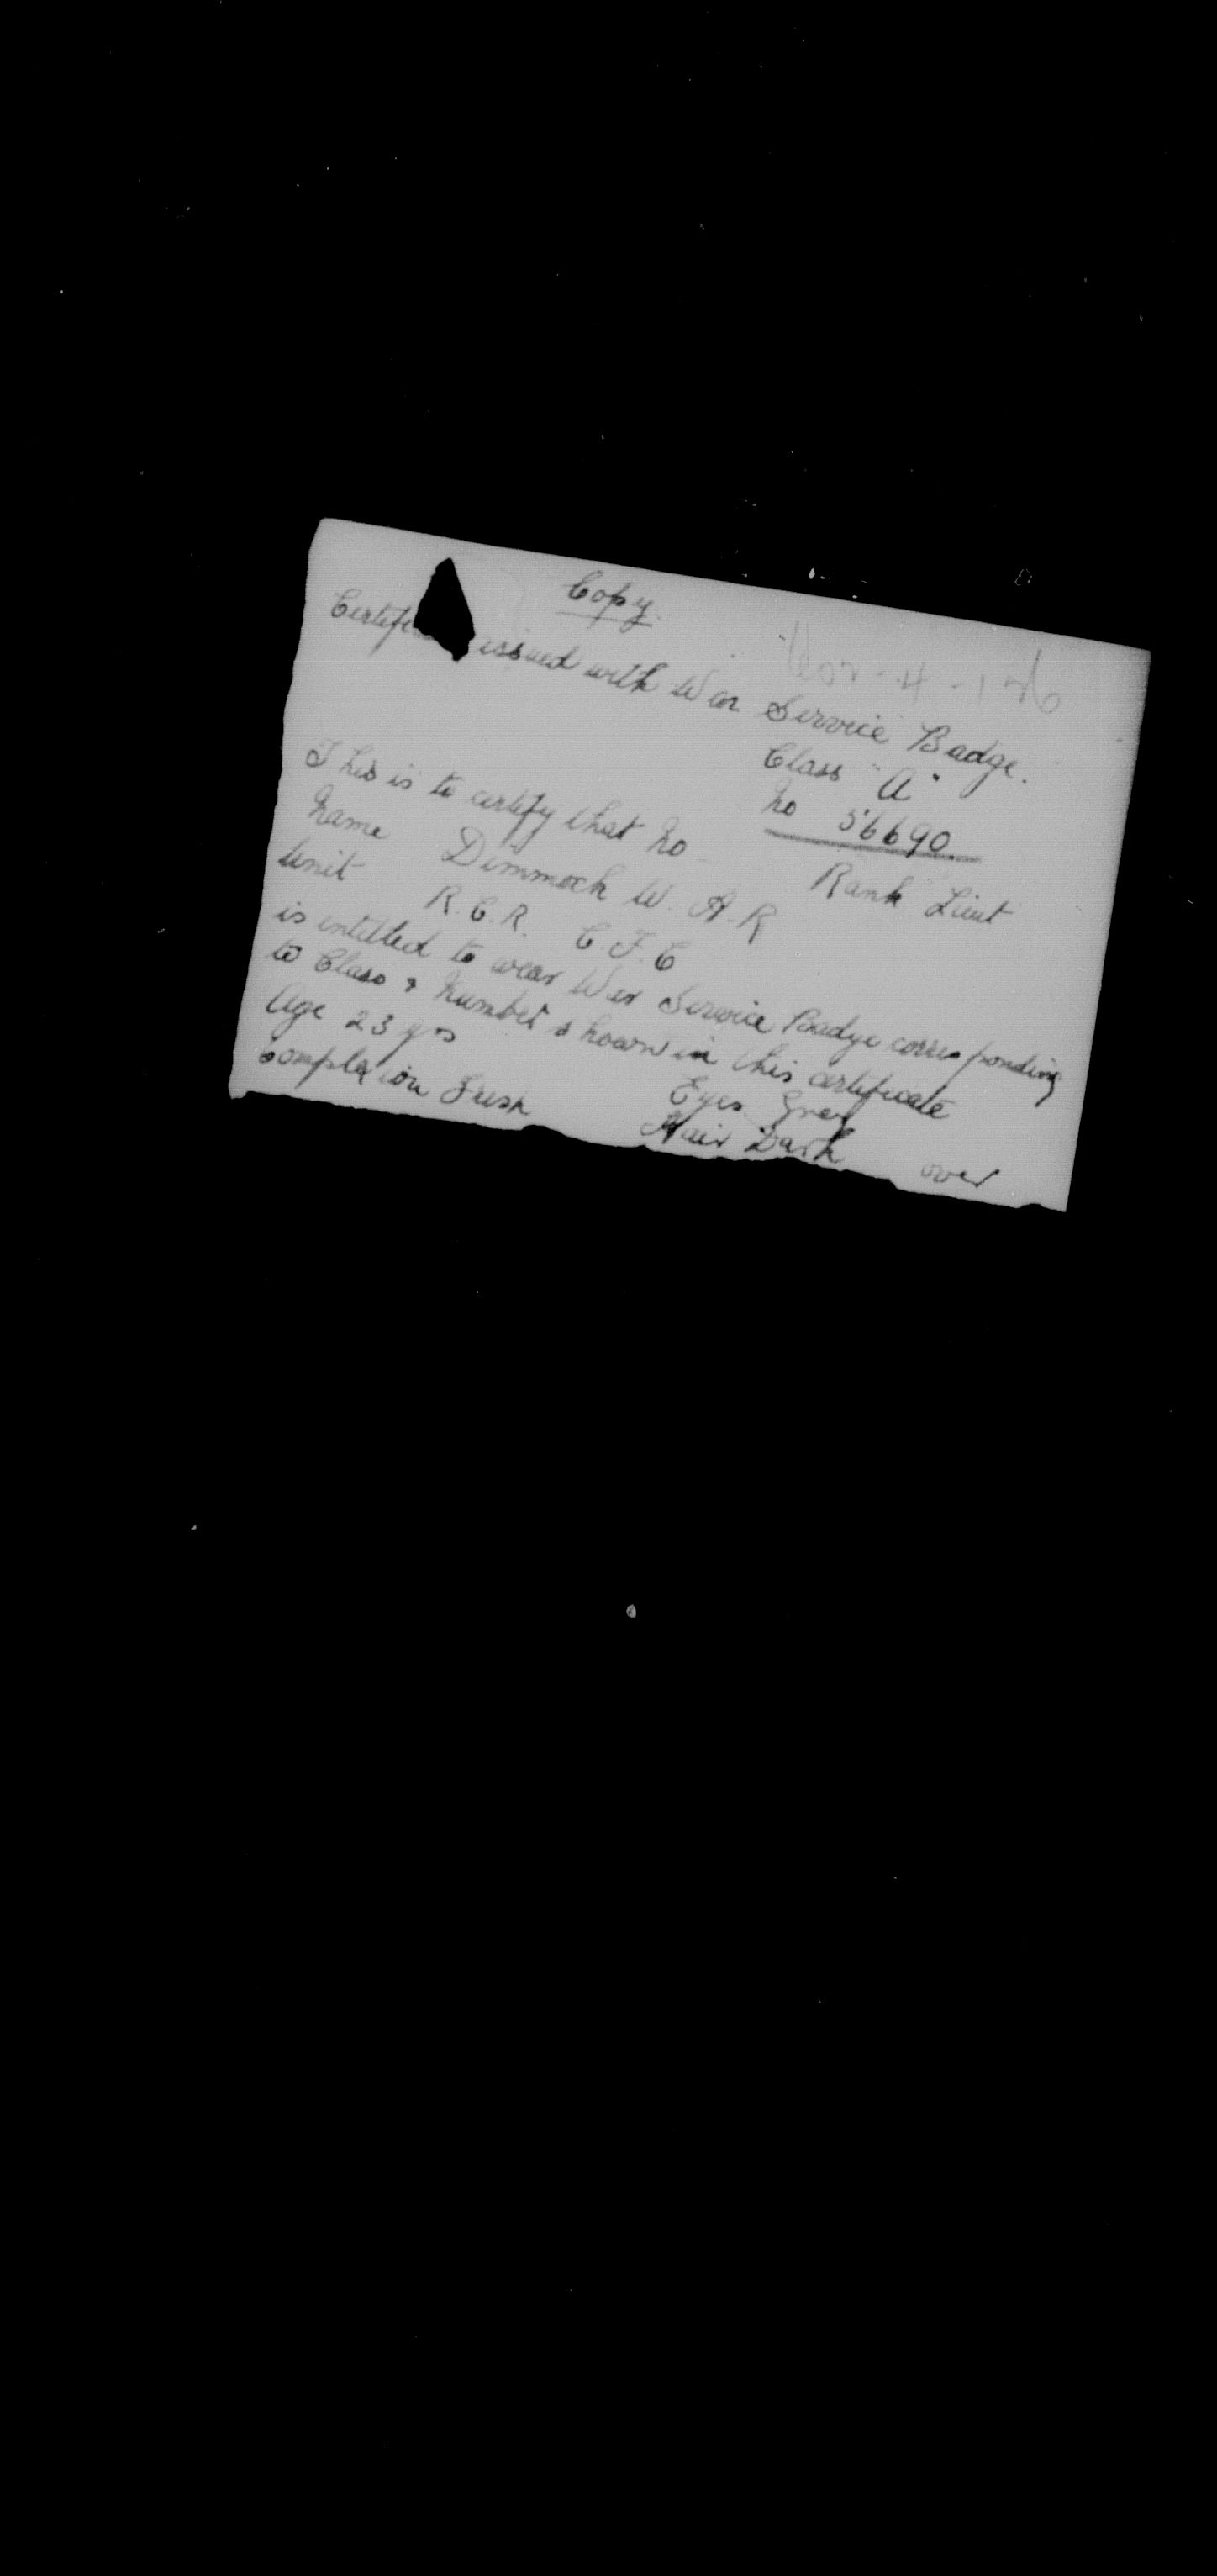 Copy.
Certifi issued with War Service Badge.
Class "A"
No 56690
This is to certify that No Rank Lieut
Name Dimmock W. A. R
Unit R.C.R. C.F.C
is entitled to wear War Service Badge corresponding
to Class & Number shown in this certificate
Age 23 yrs Eyes Grey
Complexion Fresh Hair Dark
over